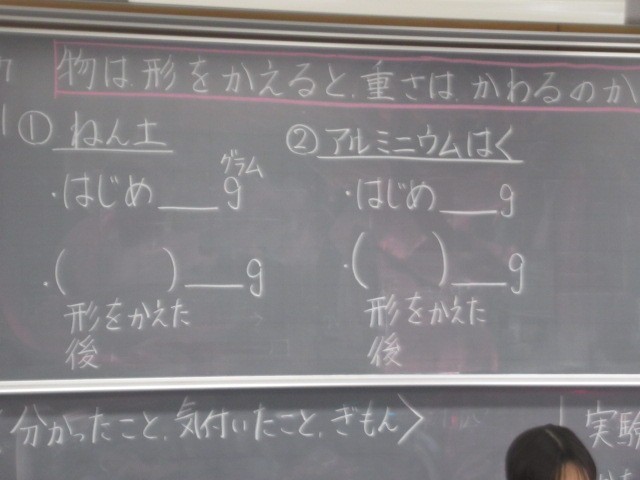 物は、形をかえると、重さは、かわるのか
① ねん土
グラム
・はじめ＿＿g
・(　　　)＿＿g
形をかえた
後
② アルミニウムはく
・はじめ＿＿g
・(　　　)＿＿g
形をかえた
後
分かったこと、気付いたこと、ぎもん〉
実験